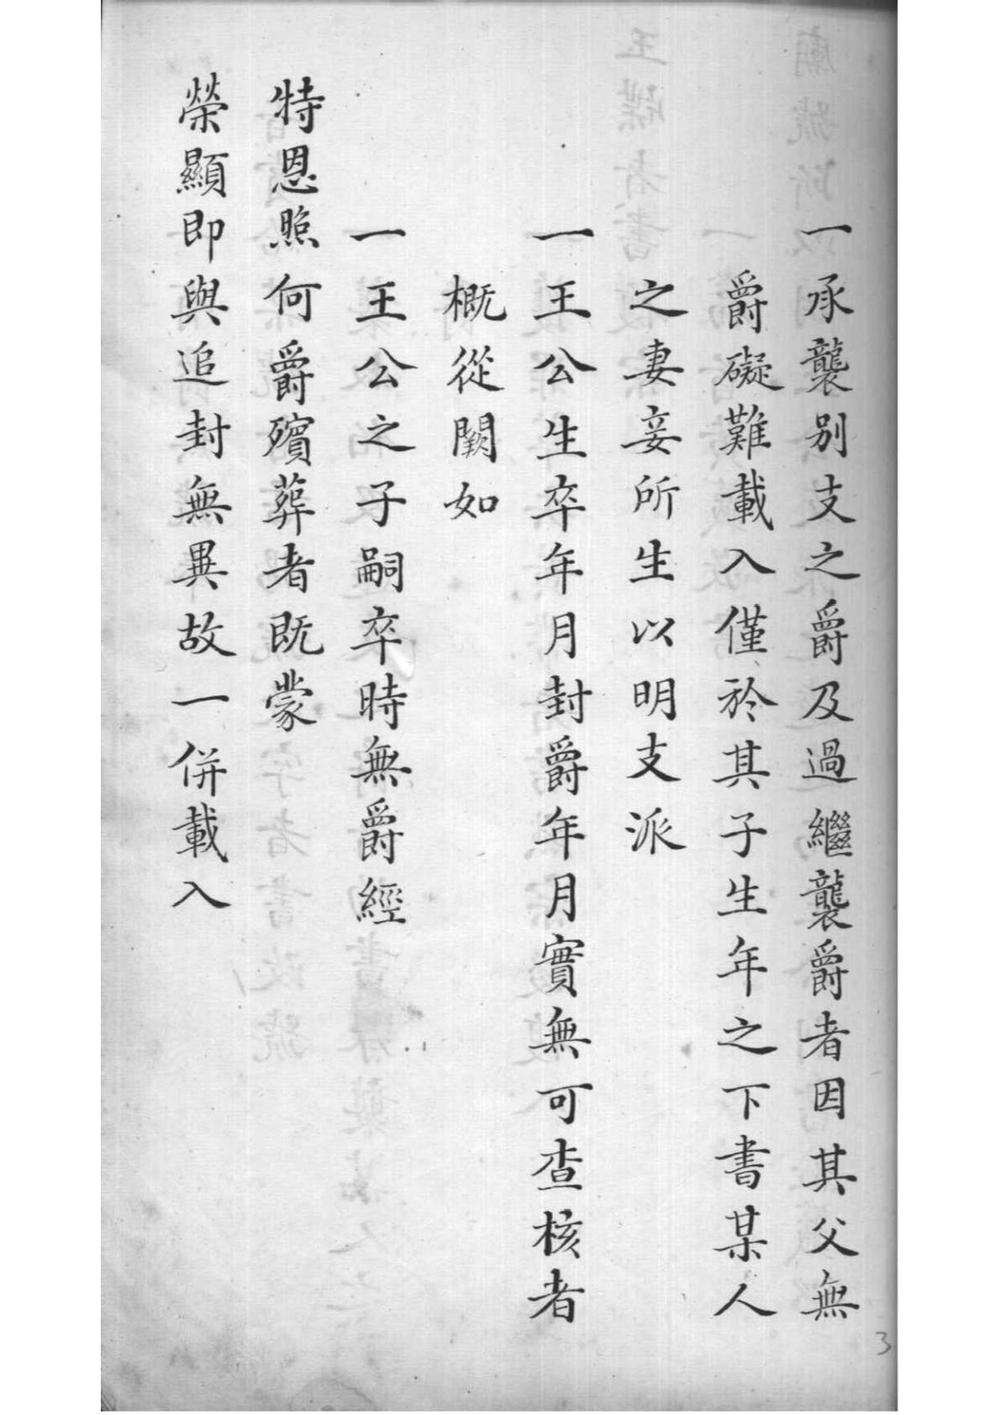 一承襲別支之爵及過繼襲爵者因其父無
爵礙難載入僅於其子生年之下書某人
之妻妾所生以明支派
一王公生卒年月封爵年月實無可查核者
概從闕如
一王公之子嗣卒時無爵經
特恩照何爵殯葬者既蒙
榮顯即與追封無異故一併載入
3